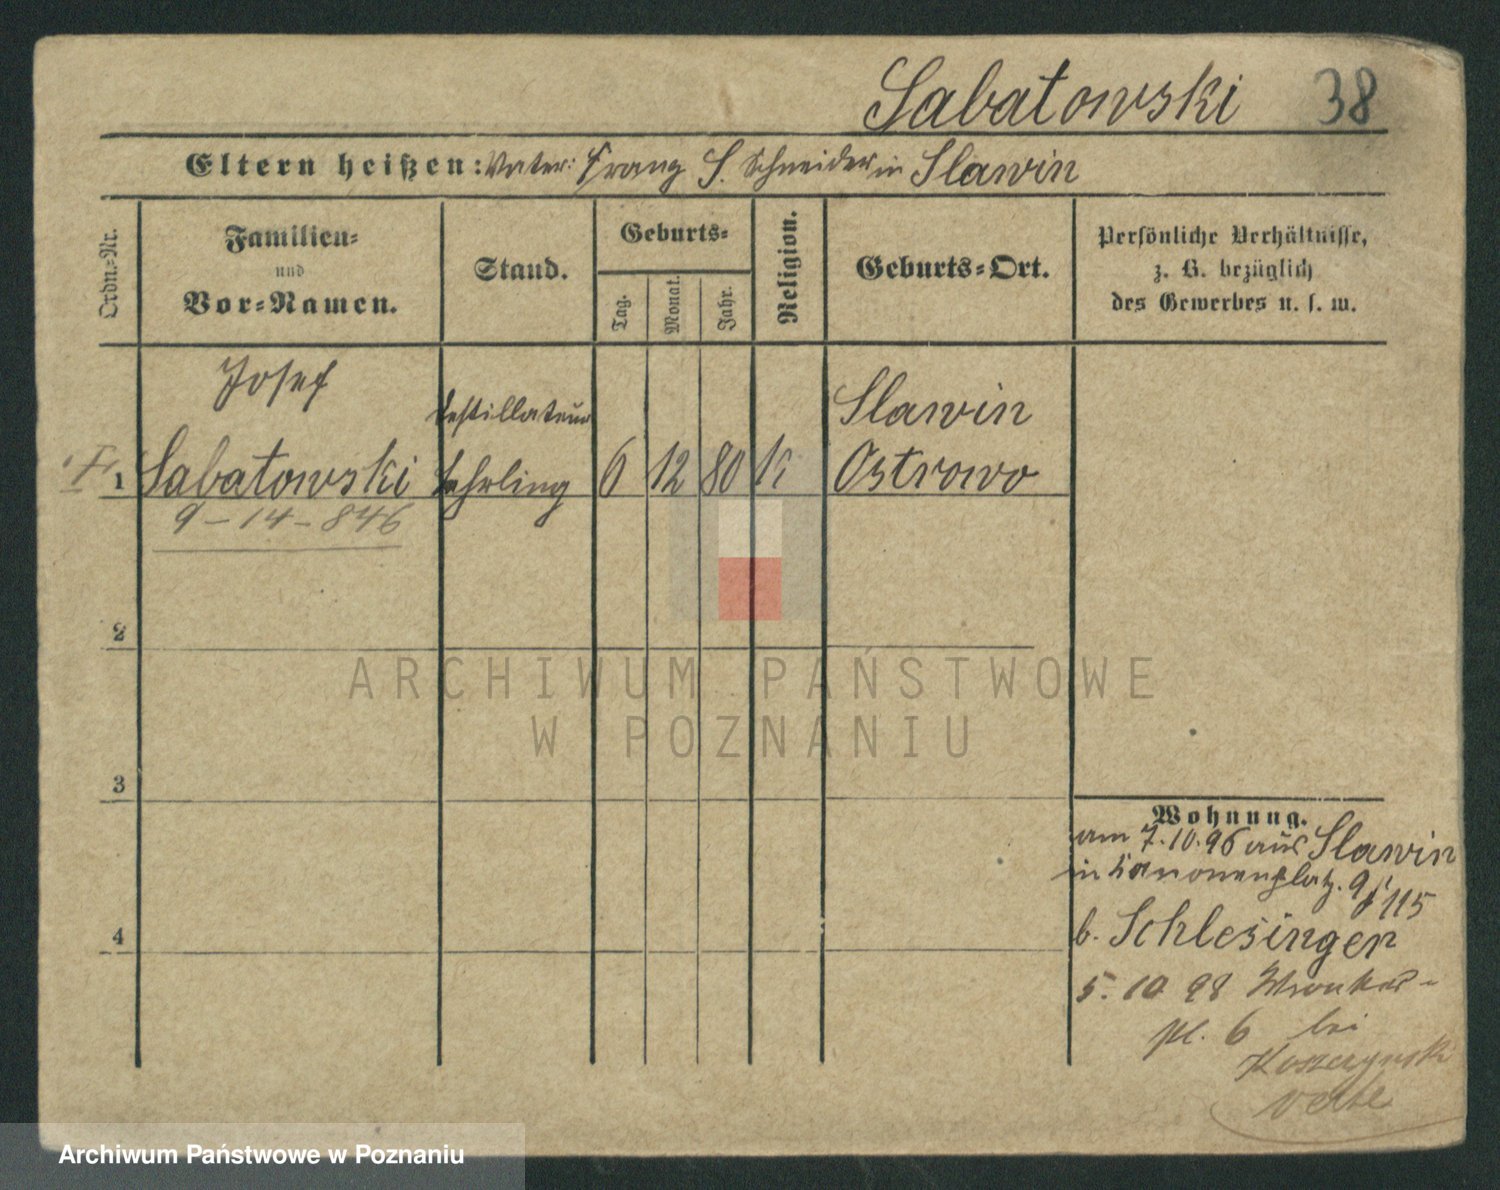 Sabatowski 38
Eltern heißen: Vater: Franz S. Schneider in Slawin
Ordn.-Nr.
Familien-
und
Vor-Namen.
Stand.
Geburts-
Tag.
Monat.
Jahr.
Religion.
Geburts-Ort.
Persönliche Verhältnisse,
z. B. bezüglich
des Gewerbes u. s. w.
Josef
Destillateur
Slawin
1 Sabatowski Lehrling 6 12 80 K Ostrowo
9-14-846
2
3
4
Wohnung.
am 7.10.96 aus Slawin
in Kanonenplatz. 9
115
b. Schlesinger
5. 10 98 Wronker-
pl. 6 bei
verte
ARCHIWUM PAŃSTWOWE
W POZNANIU
Archiwum Państwowe w Poznaniu